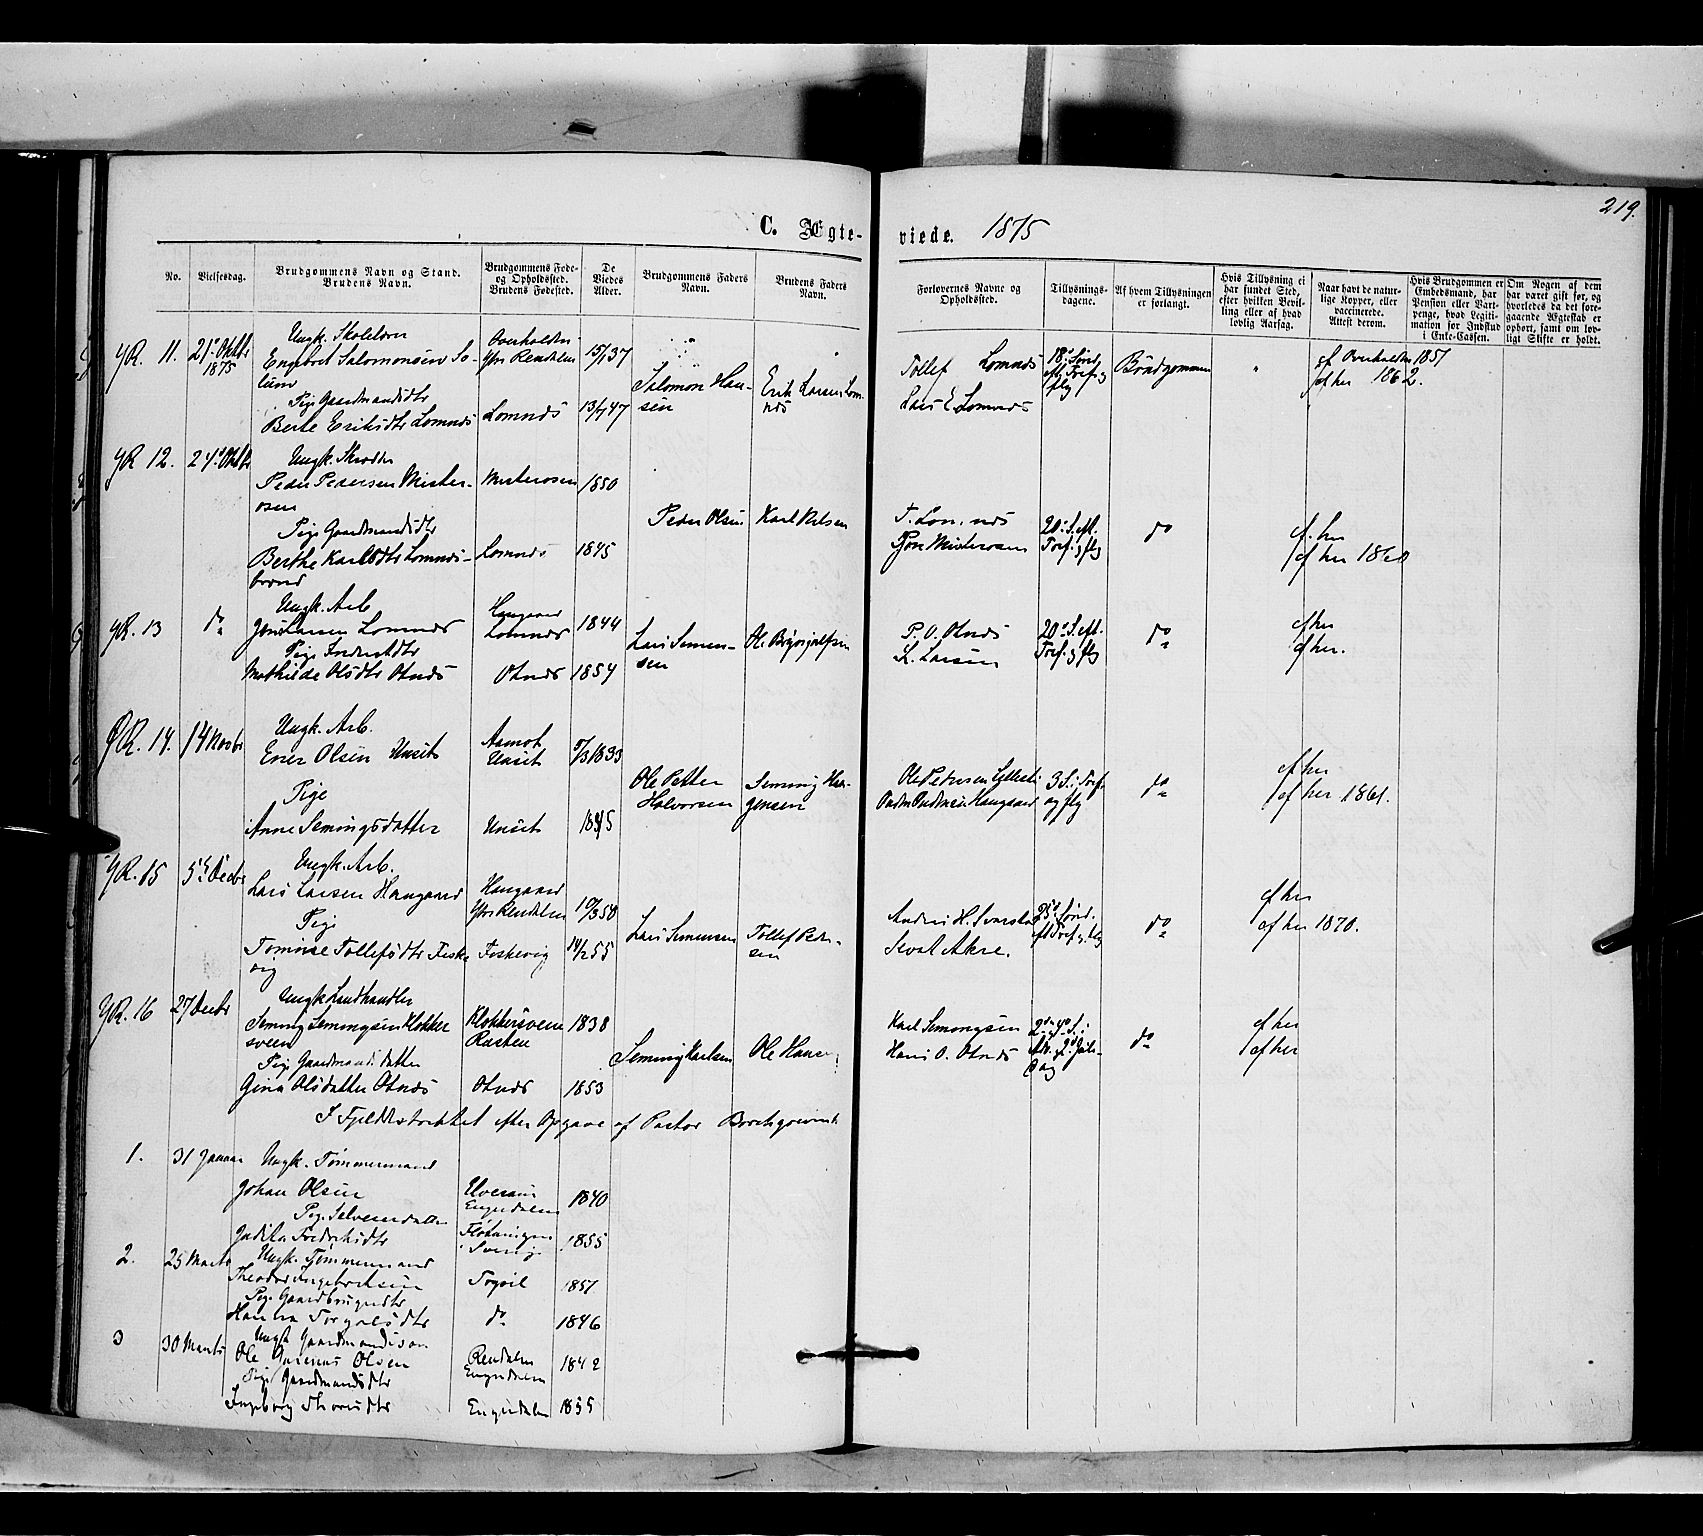 219.
C. Ægte-
viede. 1875
No.
Vielsesdag.
Brudgommens Navn og Stand.
Brudens Navn.
Brudgommens Føde-
og Opholdssted.
Brudens Fødested.
De
Viedes
Alder.
Brudgommens Faders
Navn.
Brudens Faders
Navn.
Forlovernes Navne og
Opholdssted.
Tillysnings-
dagene.
Af hvem Tillysningen
er forlangt.
Hvis Tillysning ei
har fundet Sted,
efter hvilken Bevil-
ling eller af hvad
lovlig Aarsag.
Naar havt de natur-
lige Kopper, eller
vaccinerede.
Attest derom.
Hvis Brudgommen er
Embedsmand, har
Pension eller Vart-
penge, hvad Legiti-
mation for Indskud
i Enke-Cassen.
Om Nogen af dem
har været gift før, og
hvorledes da det fore-
gaaende Ægteskab er
ophørt, samt om lov-
ligt Skifte er holdt.
YR. 11. 21de Oktbr
1875
Ungk. Skolelærer
Engebret Salomonsen So-
lum
Pige Gaardmandsdtr
Berte Eriksdtr Lomnæs
Overhalden
Ytre Rendalen
Lomnæs
15/1 37
13/1 47
Salomon Han-
sen
Erik Larsen Lom-
næs
Tollef Lomnæs
Lars E Lomnæs
18de Sønd.
eft. Tref. og
flg
Brudgommen
"
af Overhalden 1851
af her 1862.
YR 12. 24de Oktbr
Ungk. Skrædder
Peder Pedersen Mister-
osen
Pige Gaardmandsdtr
Berthe Karlsdtr Lomnæs-
Misterosen
Lomnæs
1850
1845
Peder Olsen
Karl Nilsen
T. Lomnæs
Misterosen
20de S. eft.
Tref. og flg
do
af her
af her 1860
YR. 13 do
Ungk. Arb
Jens Larsen Lomnæs
Pige Inderstdtr
Mathilde Olsdtr Otnæs
Haugaard
Lomnæs
Otnæs
1844
1854
Lars Simen-
sen
Ol. Brynjulfsen
P. O. Otnæs
L. Larsen
20de S. eft.
Tref. og flg
do
af her
af her.
ØR. 14. 14 Novbr
Ungk. Arb.
Ener Olsen Unset
Pige
Anne Semingsdatter
Aamot
Unset
Unset
5/3 1833
1845
Ole Petter
Halvorsen
Seming Har-
gensen
Ole Pedersen
Haugaard
3 S. i Tref.
og flg
do
af her
af her 1861.
YR. 15 5te Decbr
Ungk. Arb.
Lars Larsen Haugaard
Pige
Tomine Tollefsdtr Fiske-
vig
Haugaard
Ytre Rendalen
Fiskevig
10/3 50
14/2 55
Lars Simensen
Tollef Peder-
sen
Andres H.
Sival Akre.
25de Sønd.
eft Tref. og flg
do
af her
af her 1870.
YR. 16 27 Decbr
Ungk. Landhandler
Seming Semingsen Klokker
sveen
Pige Gaardmandsdatter
Gina Olsdatter Otnæs
Klokkersveen
Rasten
Otnæs
1838
1853
Seming Karlsen
Ole Hansen
Karl Semingsen
Hans O. Otnæs
2den og 4de S. i
Adv. og 2d Jule-
dag
do
af her
af her
I Fjelddistriktet efter Opgave af Pastor Borchgrevink
1. 31 Januar
Ungk. Tømmermand
Johan Olsen
Pige Selveierdatter
Judita Fredriksdtr
Engerdalen
Fløtningen
i Sverig
1840
1855
2. 25 Marts
Ungk. Tømmermand
Theodor Ingebrektsen
Pige Gaardbrugerdtr
Hanna Torgalsdtr
do
1851
1846
3 30 Marts
Ungk Gaardmandssøn
Ole Olsen
Pige Gaardmandsdtr
Ingeborg Thoresdtr
Rendalen
Engerdalen
Engerdalen
1842
1855